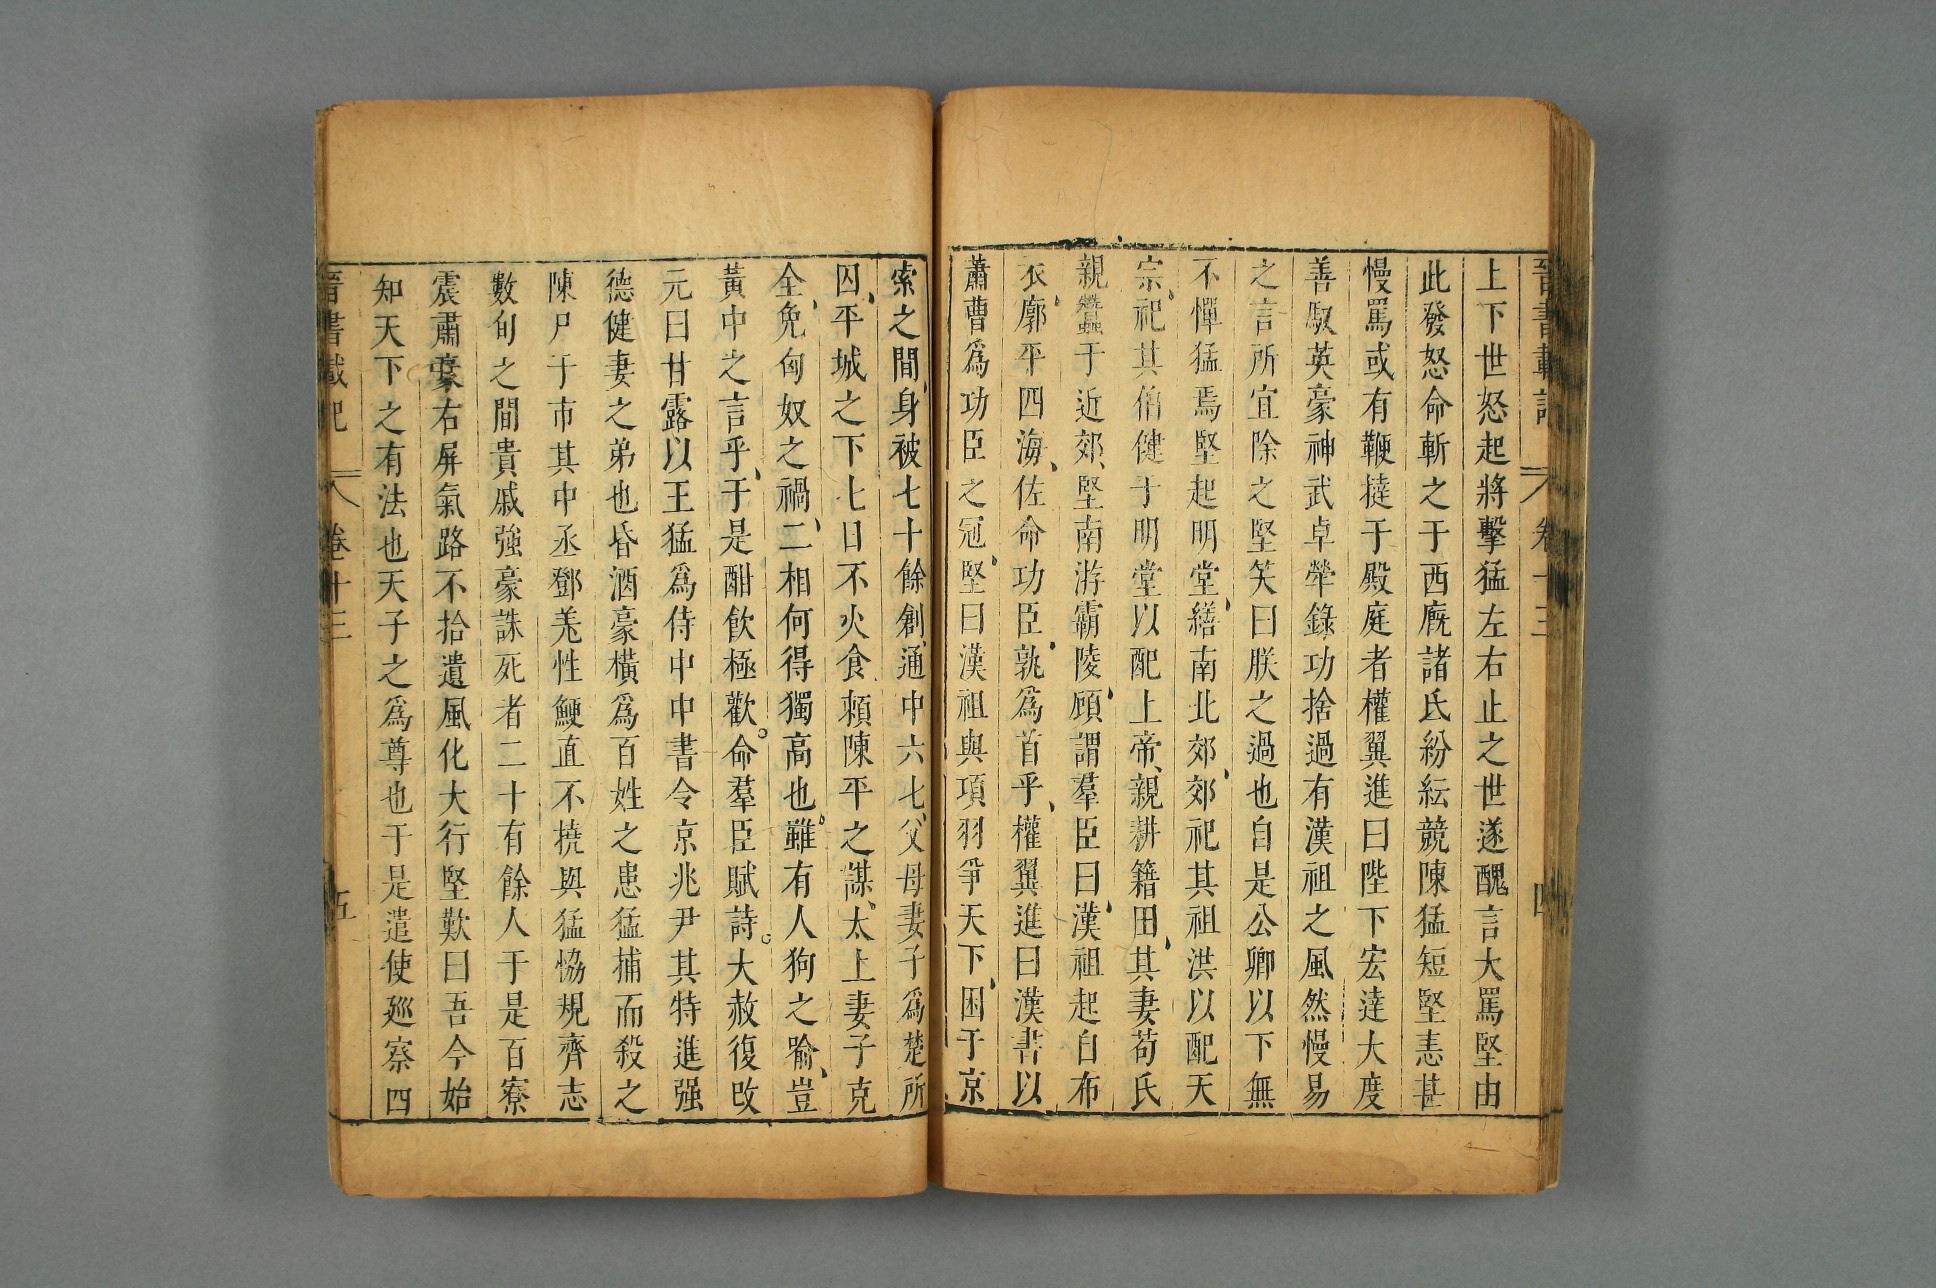 晉書載記 卷十三 四
上下世怒起將擊猛左右止之世遂醜言大罵堅由
此發怒命斬之于西廐諸氐紛紜競陳猛短堅恚甚
慢罵或有鞭撻于殿庭者權翼進曰陛下宏達大度
善馭英豪神武卓犖錄功捨過有漢祖之風然慢易
之言所宜除之堅笑曰朕之過也自是公卿以下無
不憚猛焉堅起明堂繕南北郊郊祀其祖洪以配天
宗祀其伯健于明堂以配上帝親耕籍田其妻苟氏
親蠶于近郊堅南游霸陵顧謂羣臣曰漢祖起自布
衣廓平四海佐命功臣孰爲首乎權翼進曰漢書以
蕭曹爲功臣之冠堅曰漢祖與項羽爭天下困于京
索之間身被七十餘創通中六七父母妻子爲楚所
囚平城之下七日不火食賴陳平之謀太上妻子克
全免匈奴之禍二相何得獨高也雖有人狗之喻豈
黃中之言乎于是酣飲極歡命羣臣賦詩大赦復改
元曰甘露以王猛爲侍中中書令京兆尹其特進强
德健妻之弟也昏酒豪橫爲百姓之患猛捕而殺之
陳尸于市其中丞鄧羌性鯁直不撓與猛恊規齊志
數旬之間貴戚强豪誅死者二十有餘人于是百寮
震肅豪右屏氣路不拾遺風化大行堅歎曰吾今始
知天下之有法也天子之爲尊也于是遣使廵察四
晉書載記 卷十三 五